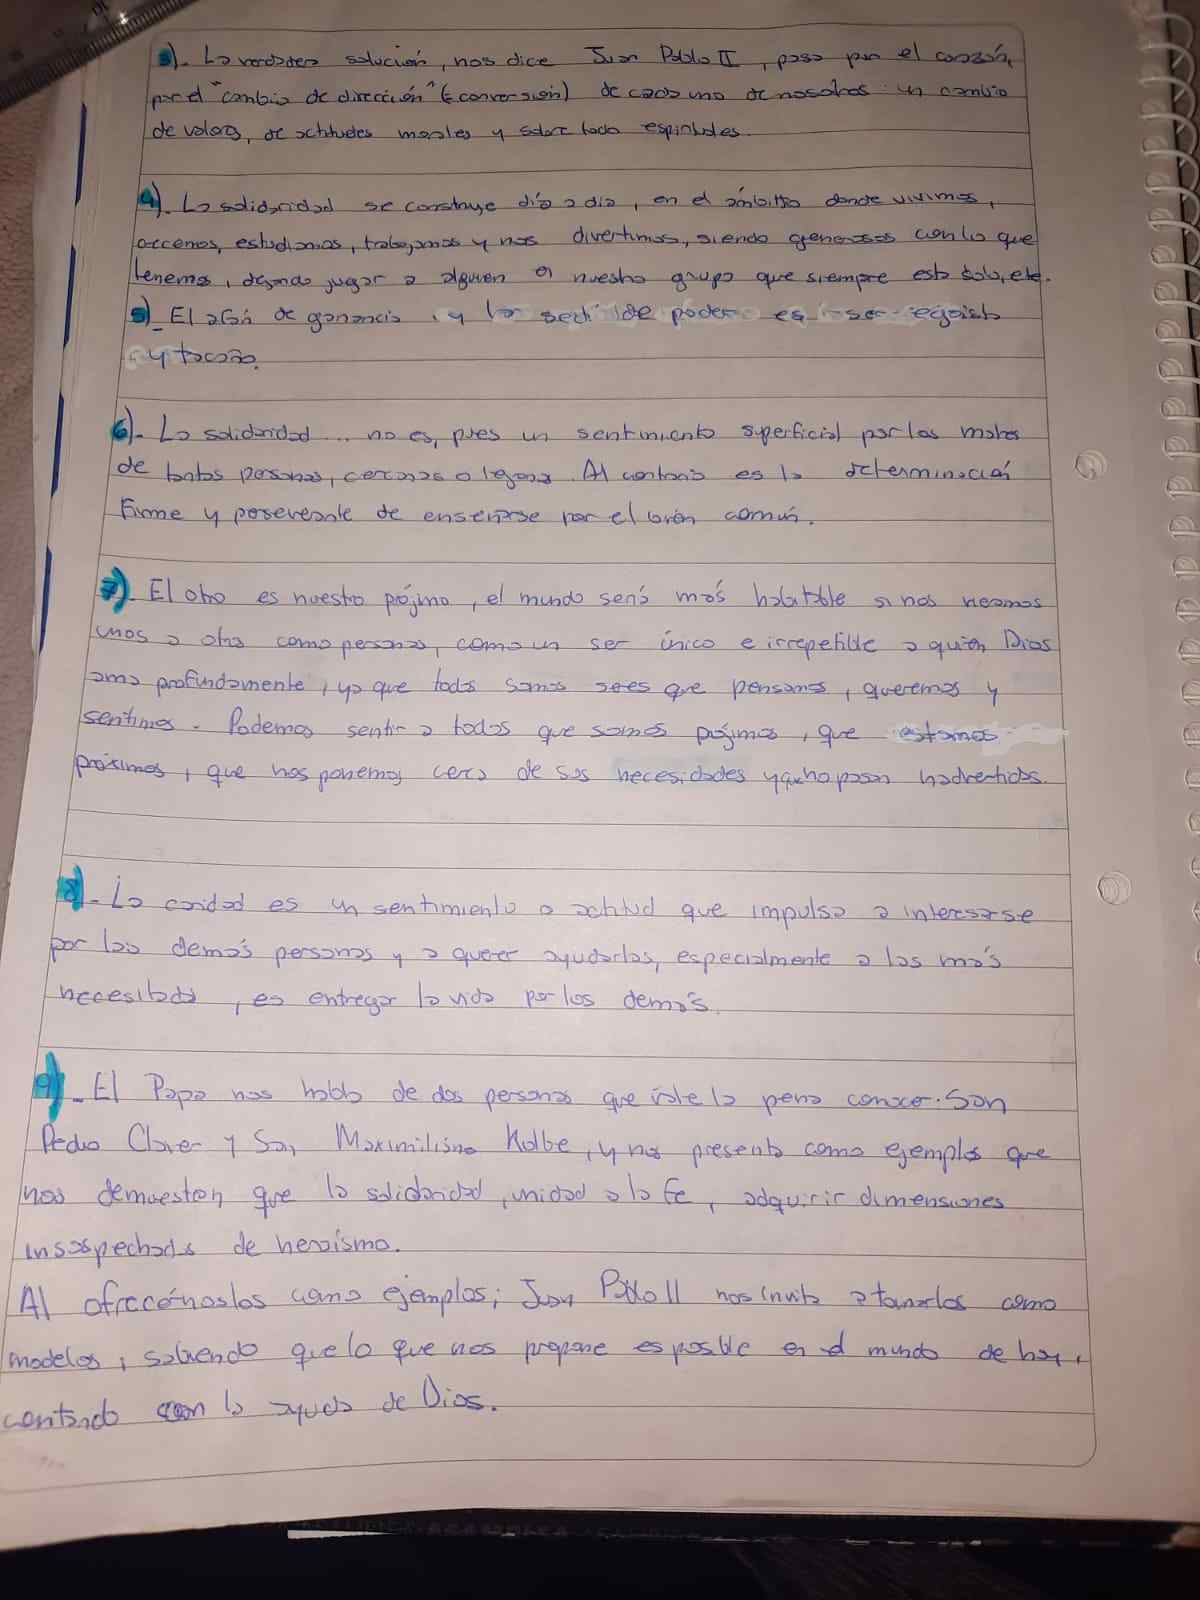 3)- La verdadera solución, nos dice Juan Pablo II, pasa por el corazón,
por el "cambio de dirección" (= conversión) de cada uno de nosotros: un cambio
de valores, de actitudes morales y sobre todo espirituales.
4)- La solidaridad se construye día a día, en el ámbito donde vivimos,
crecemos, estudiamos, trabajamos y nos divertimos, siendo generosos con lo que
tenemos, dejando jugar a alguien en nuestro grupo que siempre esta solo, etc.
5)- El afán de ganancia y la sed de poder es ser egoista
y tacaño.
6)- La solidaridad... no es, pues un sentimiento superficial por los males
de tantas personas, cercanas o lejanas. Al contrario es la determinación
firme y perseverante de empeñarse por el bien común.
7)- El otro es nuestro prójimo, el mundo será más habitable si nos vearmos
unos a otro como personas, como un ser único e irrepetible a quién Dios
ama profundamente, ya que todos somos seres que pensamos, queremos y
sentimos. Podemos sentir a todos que somos prójimos, que estamos
próximos, que nos ponemos cerca de sus necesidades y que no pasan inadvertidas.
8)- La caridad es un sentimiento o actitud que impulsa a interesarse
por las demás personas y a querer ayudarlas, especialmente a los más
necesitados, es entregar la vida por los demás.
9)- El Papa nos habla de dos personas que vale la pena conocer: San
Pedro Claver y San Maximiliano Kolbe, y nos presenta como ejemplos que
nos demuestran que la solidaridad, unidad a la fe, adquirir dimensiones
insospechads de heroísmo.
Al ofrecérnoslos como ejemplos; Juan Pablo II nos invita a tomarlos como
modelos, sabiendo que lo que nos propone es posible en el mundo de hoy,
contando con la ayuda de Dios.